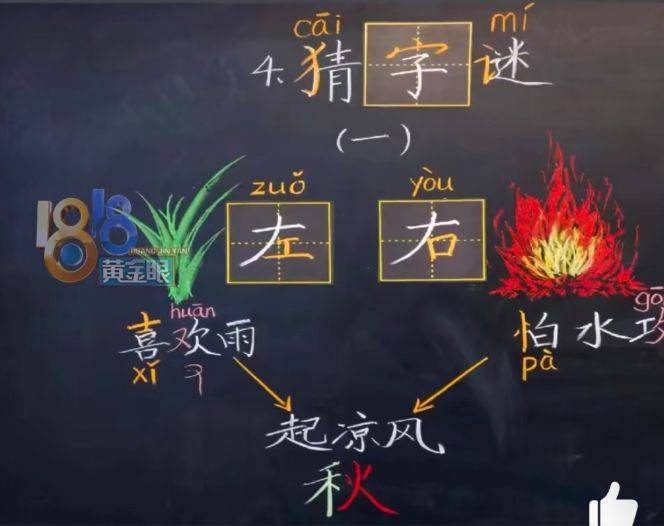 cāi mí
4.猜字谜
（一）
zuǒ yòu
左 右
1818
HUANG JIN YAN
黄金眼
huān
喜欢雨
xǐ
gō
怕水攻
pà
起凉风
秋